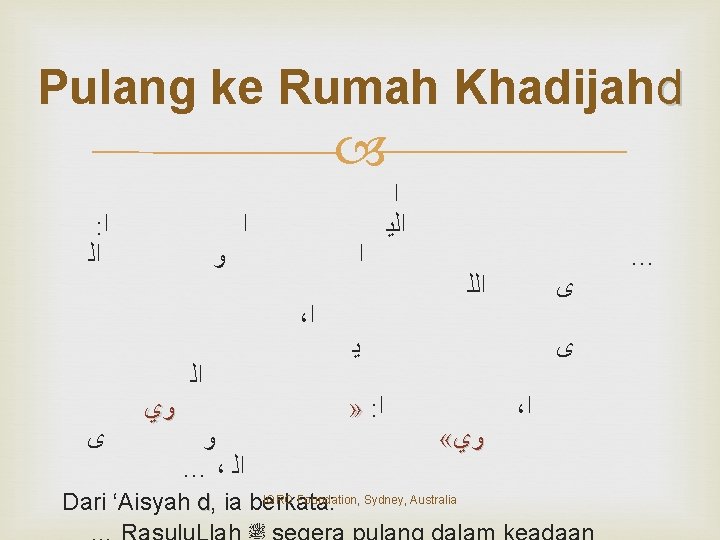 Pulang ke Rumah Khadijahd
ا
اليـ ا ا:
… ا و الـ
ى اللـ
ا،
ى يـ
الـ
ا، ا: « وي
وي» و ى
الـ ، …
Dari ‘Aisyah d, ia berkata:
Foundation, Sydney, Australia
… Rasulu.Llah ﷺ segera pulang dalam keadaan